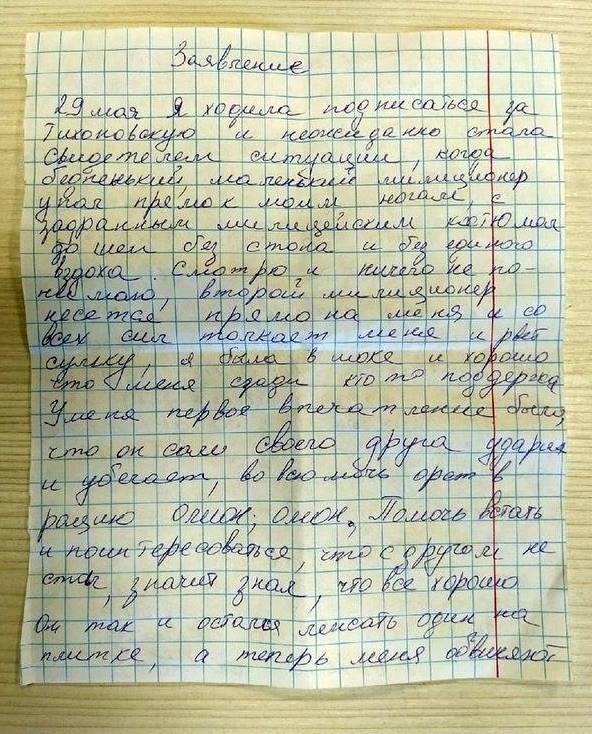 Заявление
29 мая я ходила подписаться за
Тихоновскую и неожиданно стала
свидетелем ситуации, когда
бедненький, маленький милиционер
упал прямо к моим ногам, с
задранным милицейским костюмом
до шеи без стона и без единого
вздоха. Смотрю и ничего не по-
нимаю, второй милиционер
несется прямо на меня и со
всех сил толкает меня и рвёт
сумку, я была в шоке и хорошо
что меня сзади кто то поддержал
У меня первое впечатление было,
что он сам своего друга ударил
и убегает, во всю мочь орет в
рацию омон, омон. Помочь встать
и поинтересоваться, что с другом не
стал, значит знал, что все хорошо
Он так и остался лежать один на
плитке, а теперь меня обвиняют